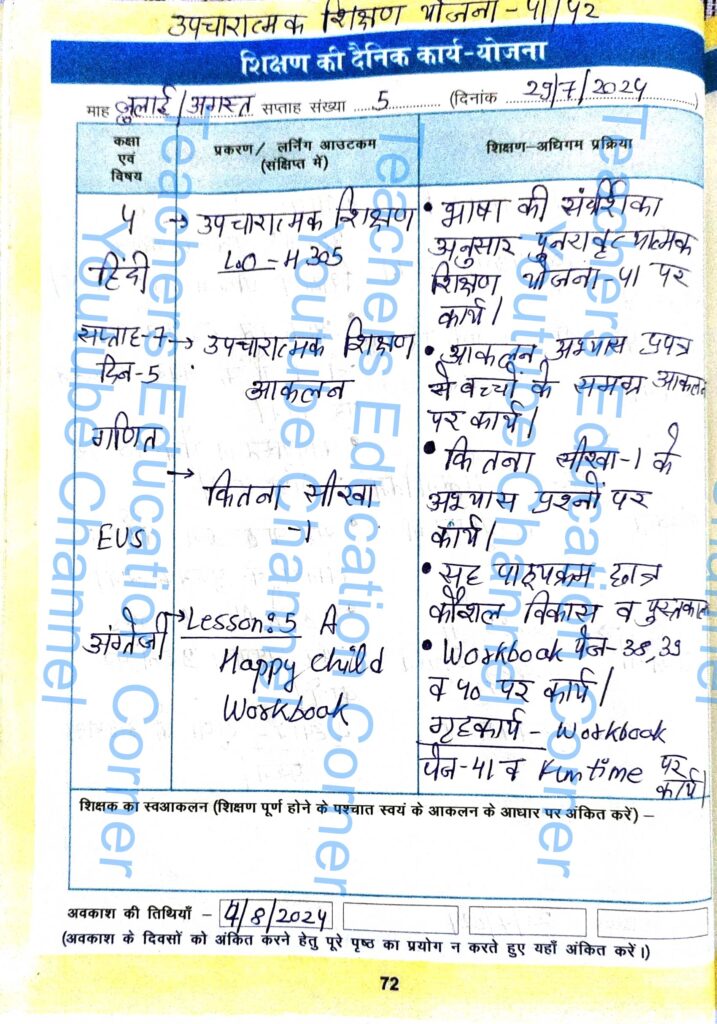 उपचारात्मक शिक्षण योजना - ५१/५२
शिक्षण की दैनिक कार्य-योजना
माह जुलाई/अगस्त सप्ताह संख्या 5 (दिनांक 29/7/2024)
कक्षा एवं विषय
प्रकरण/ लर्निंग आउटकम (संक्षिप्त में)
शिक्षण-अधिगम प्रक्रिया
५
हिंदी
→ उपचारात्मक शिक्षण
L.O - H 305
• भाषा की संदर्शिका
अनुसार पुनरावृत्यात्मक
शिक्षण योजना-५१ पर
कार्य।
सप्ताह-7
दिन-5
गणित
→ उपचारात्मक शिक्षण
आकलन
• आकलन अभ्यास प्रपत्र
से बच्चों के समग्र आकलन
पर कार्य।
EVS
→ कितना सीखा
-1
• कितना सीखा-1 के
अभ्यास प्रश्नों पर
कार्य।
• सह पाठ्यक्रम छात्र
कौशल विकास व पुस्तकालय
अंग्रेजी
→ Lesson:5 A
Happy child
Workbook
• Workbook पेज-38,39
व ४० पर कार्य।
गृहकार्य - Workbook
पेज-41 व Fun time पर
कार्य।
शिक्षक का स्वआकलन (शिक्षण पूर्ण होने के पश्चात स्वयं के आकलन के आधार पर अंकित करें) –
अवकाश की तिथियाँ – 4/8/2024
(अवकाश के दिवसों को अंकित करने हेतु पूरे पृष्ठ का प्रयोग न करते हुए यहाँ अंकित करें।)
72
Teachers Education Corner
Youtube Channel
Teachers Education Corner
Youtube Channel
Teachers Education Corner
Youtube Channel